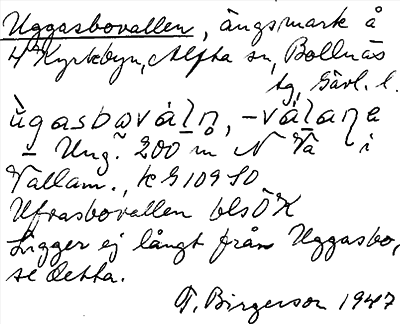 Uggasbovallen, ängsmark å
4 Kyrkbyn, Alfta sn, Bollnäs
tg, Gävl. l.
ùgasbωvàlṇ, -vàlaṇa
– Ung. 200 m N Vä i
Vallam., k G 109 SO
Ufvasbovallen blsÖK
Ligger ej långt från Uggasbo,
se detta.
T. Birgerson 1947